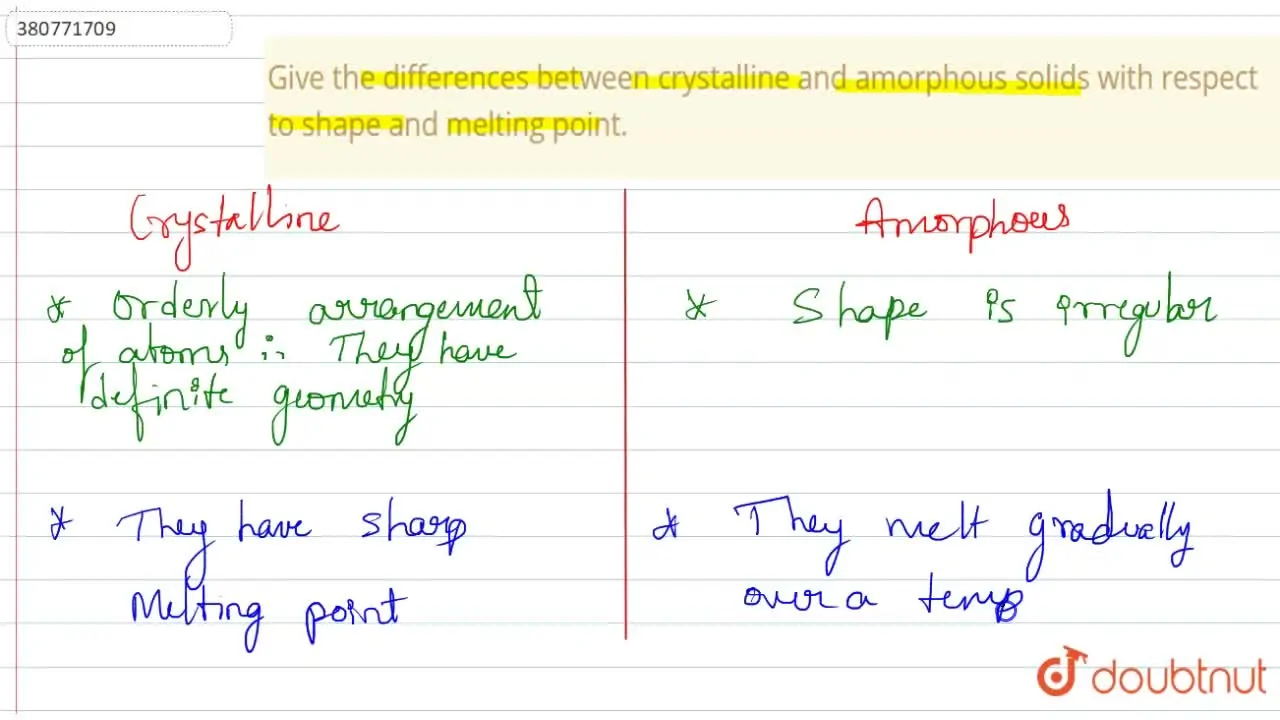 380771709
Give the differences between crystalline and amorphous solids with respect
to shape and melting point.
Crystalline
Amorphous
* Orderly arrangement
of atoms ∴ They have
definite geometry
* Shape is irregular
* They have sharp
Melting point
* They melt gradually
over a temp
doubtnut